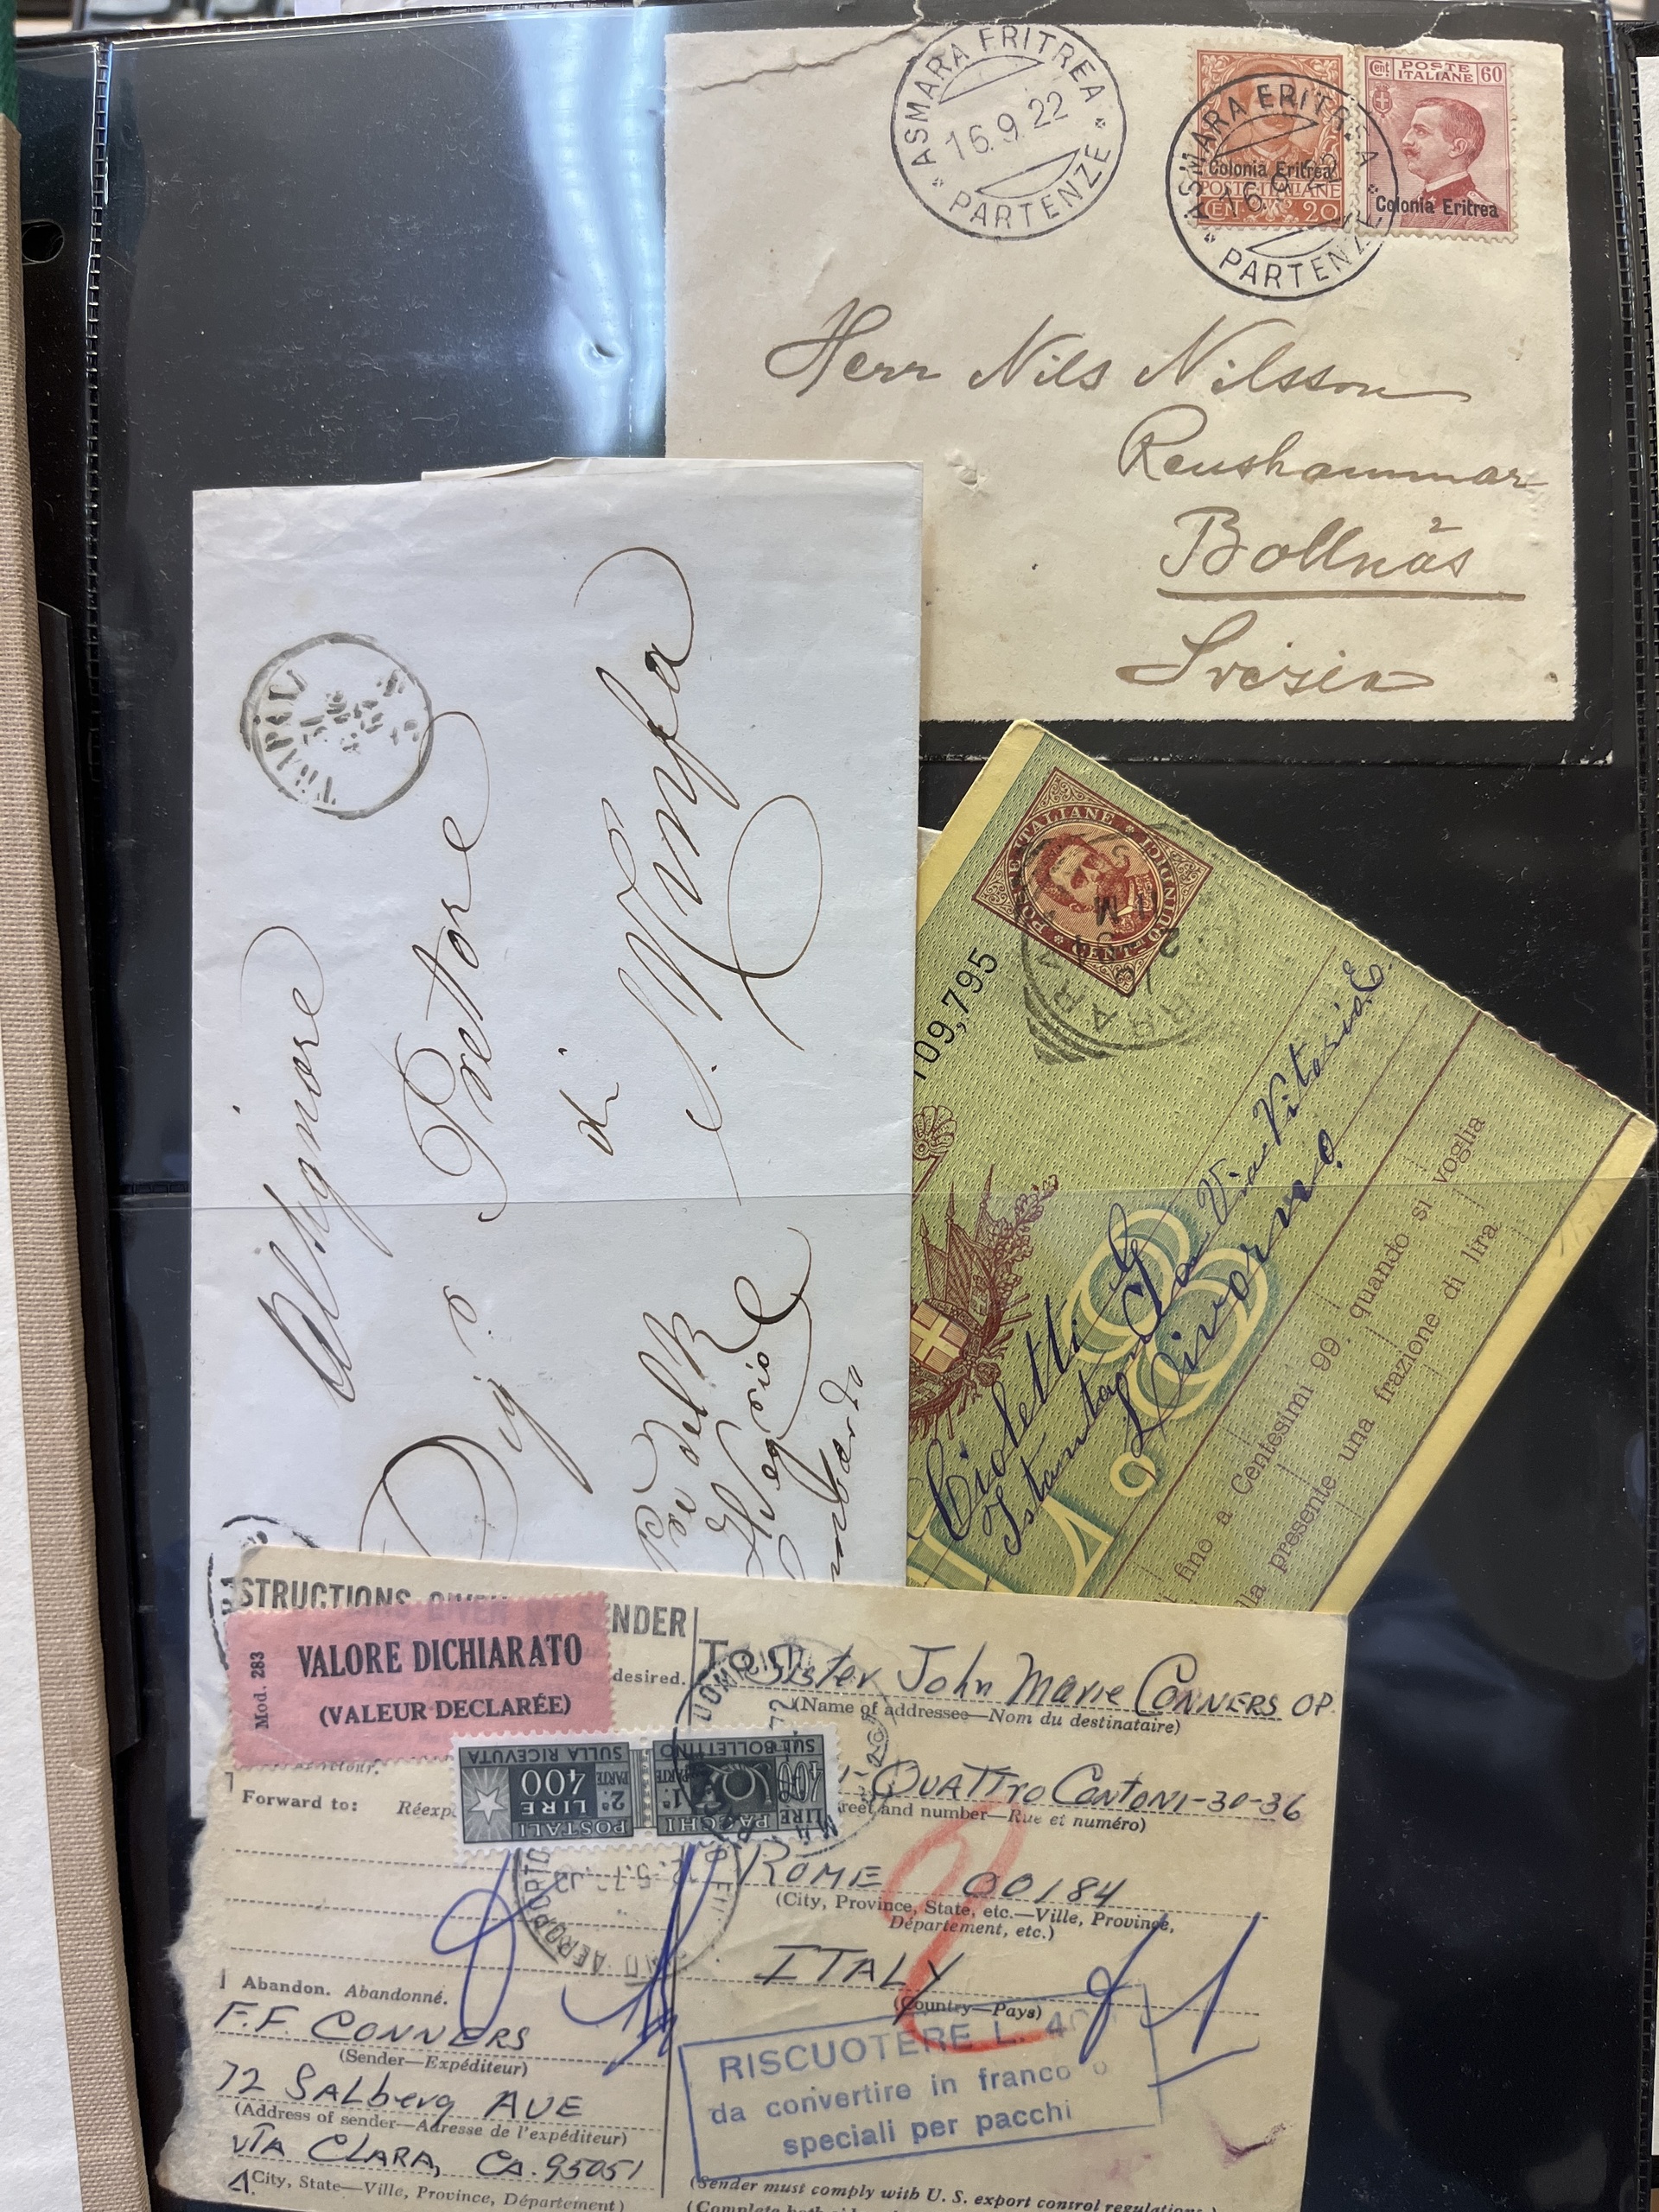 ASMARA ERITREA
16.9.22
PARTENZE
ASMARA ERITREA
16.9.22
PARTENZE
Colonia Eritrea
POSTE ITALIANE
CENT. 20
Cent. POSTE ITALIANE 60
Colonia Eritrea
Herr Nils Nilsson
Renshammar
Bollnäs
Svezia
All Signore
Sig. Pretore
di
S. Ninfa
POSTE ITALIANE
109,795
Cioletti G
Via Vittorio E.
Livorno.
fino a Centesimi 99, quando si voglia
lla presente una frazione di lira
STRUCTIONS GIVEN BY SENDER
desired.
Mod. 283
VALORE DICHIARATO
(VALEUR DECLARÉE)
SULLA RICEVUTA
PARTE 2ª
LIRE 400
POSTALI
SUL BOLLETTINO
PARTE 1ª
LIRE 400
PACCHI
Forward to: Réexp
Abandon. Abandonné.
F.F. CONNERS
(Sender—Expéditeur)
72 SALberg AVE
(Address of sender—Adresse de l'expéditeur)
TA CLARA, CA. 95051
(City, State—Ville, Province, Département)
To: Sister John Marie CONNERS OP.
(Name of addressee—Nom du destinataire)
QUATTro CantoNI-30-36
reet and number—Rue et numéro)
ROME 00184
(City, Province, State, etc.—Ville, Province,
Département, etc.)
ITALY
(Country—Pays)
RISCUOTERE L. 40
da convertire in franco
speciali per pacchi
(Sender must comply with U. S. export control regulations.)